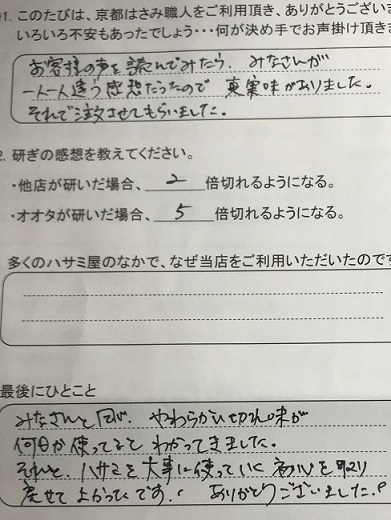 1. このたびは、京都はさみ職人をご利用頂き、ありがとうござい
いろいろ不安もあったでしょう・・・何が決め手でお声掛け頂き
お客様の声を読んでみたら、みなさんが
一人一人違う感想だったので 真実味がありました。
それで注文させてもらいました。
2. 研ぎの感想を教えてください。
・他店が研いだ場合、 2 倍切れるようになる。
・オオタが研いだ場合、 5 倍切れるようになる。
多くのハサミ屋のなかで、なぜ当店をご利用いただいたので
最後にひとこと
みなさんと同じ、やわらかい切れ味が
何日か使ってると わかってきました。
それと、ハサミを大事に使っていく初心を取り
戻せてよかったです。 ありがとうございました。